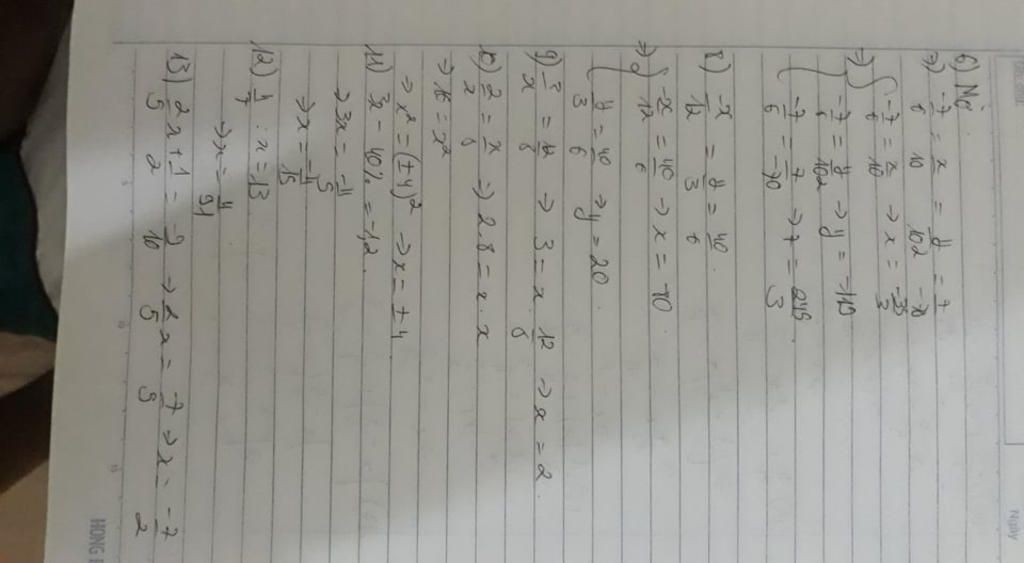 6) Nè
⇒ -7/6 = x/10 = y/102 = 7/-x
⇒ { -7/6 = x/10 → x = -35/3
-7/6 = y/102 → y = -119
-7/6 = 7/-10 → 7 = 245/3
8) -x/12 = y/3 = 40/6
⇒ { -x/12 = 40/6 → x = -80
y/3 = 40/6 ⇒ y = 20
9) 3/x = 12/8 → 3 = x . 12/8 → x = 2
10) 2/x = x/8 ⇒ 2.8 = x.x
⇒ 16 = x²
⇒ x² = (±4)² → x = ±4
11) 3x - 40% = -1,2
→ 3x = -4/5
→ x = -4/15
12) 4/7 : x = 13
→ x = 4/91
13) 2/5 x + 1/2 = -9/10 → 2/5 x = -7/5 → x = -7/2
HONG
Ngày